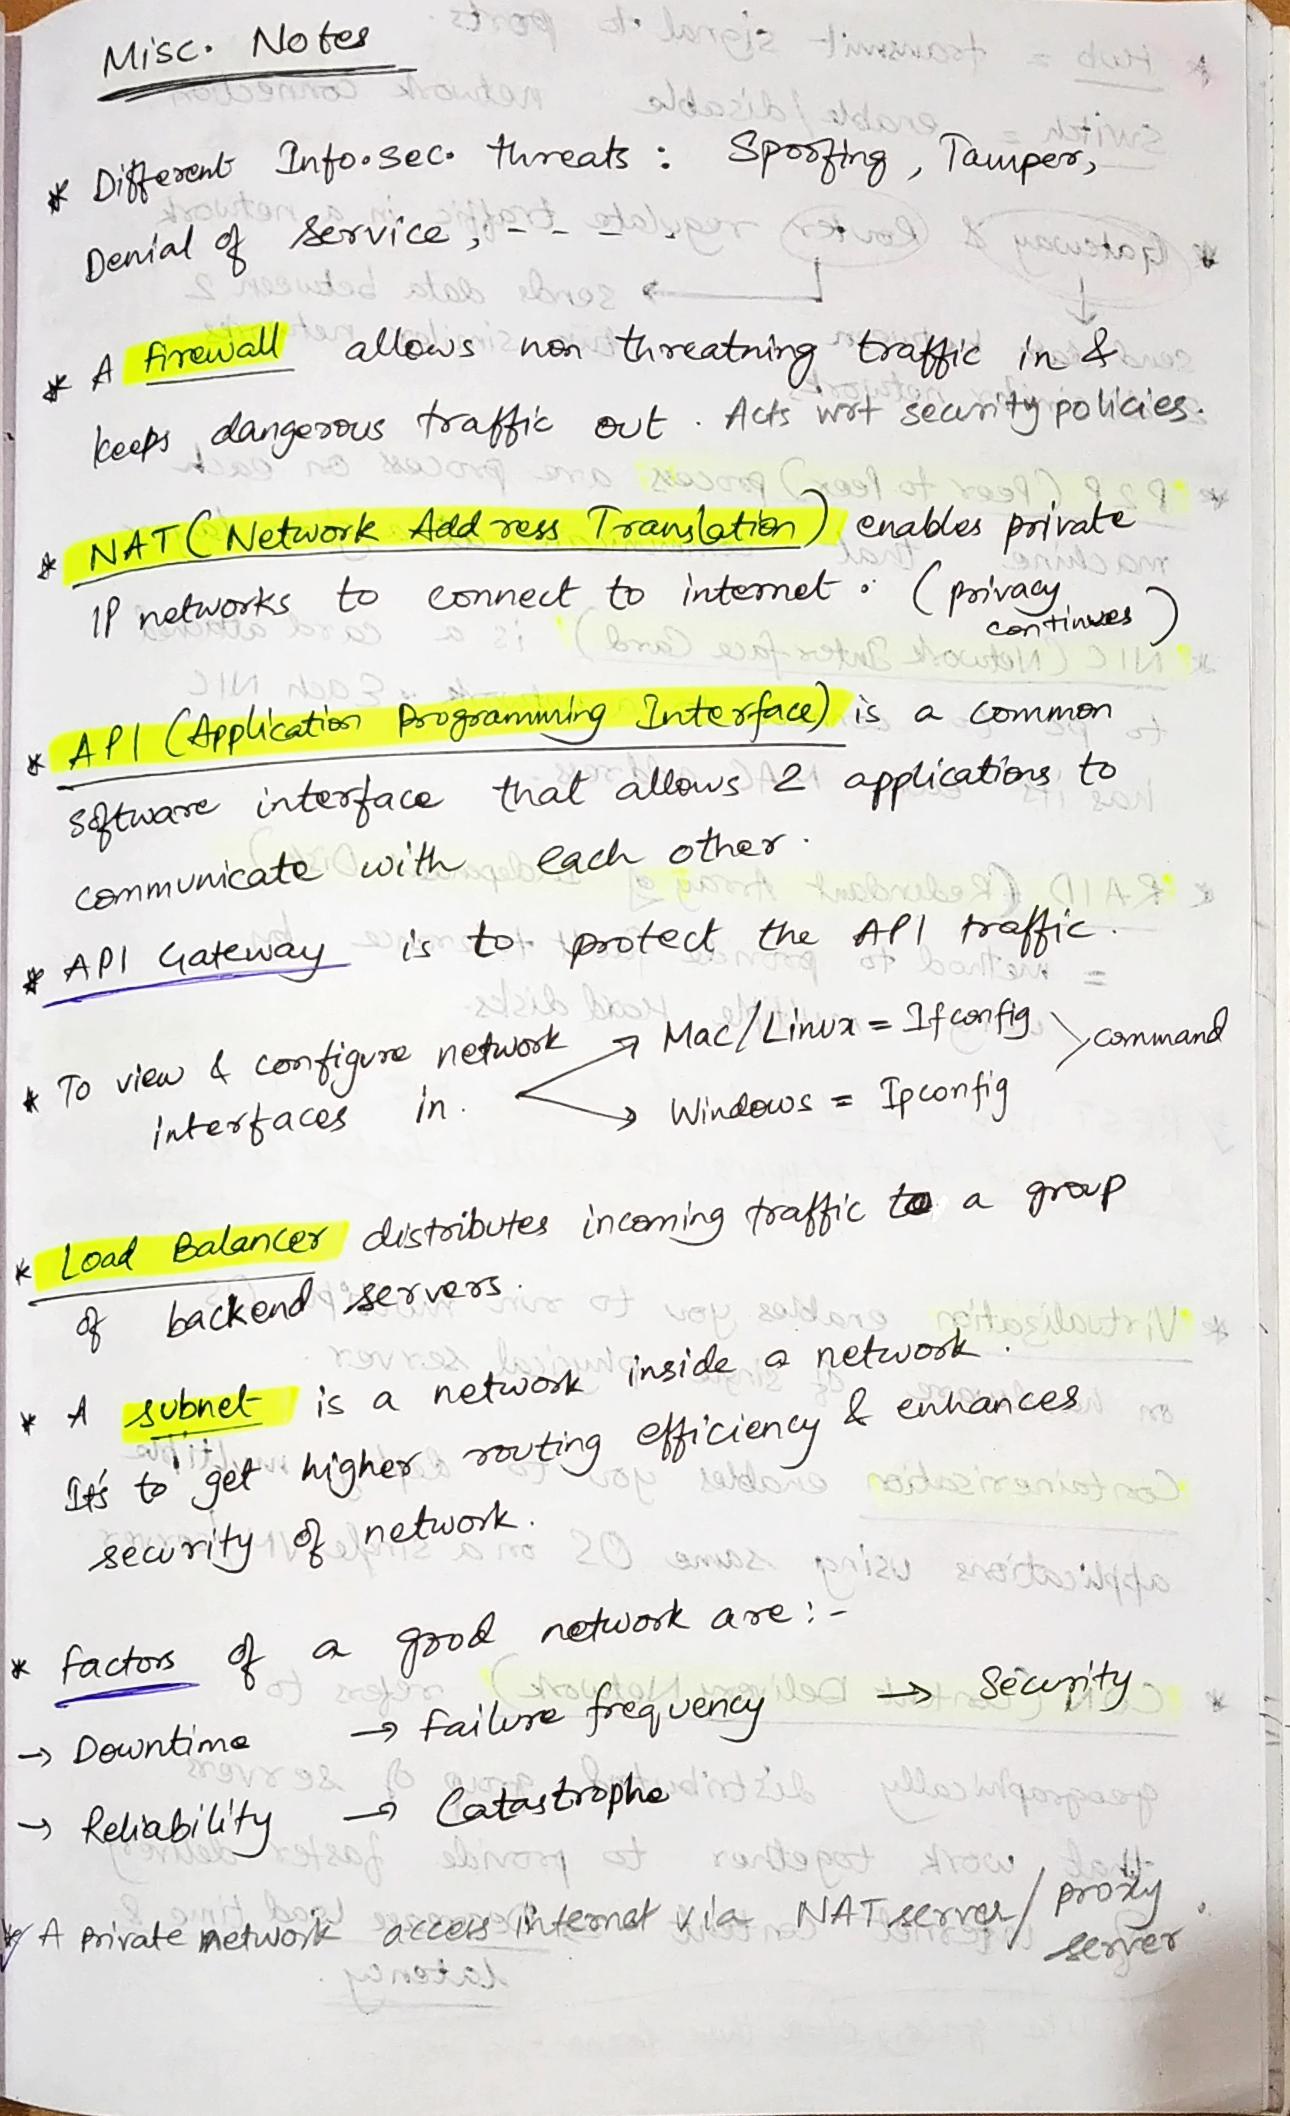 Misc. Notes
* Different Info.sec. threats : Spoofing, Tamper,
Denial of Service, - - - -
* A firewall allows non threatning traffic in &
keeps dangerous traffic out. Acts wrt security policies.
* NAT (Network Address Translation) enables private
IP networks to connect to internet. (privacy
continues)
* API (Application Programming Interface) is a common
software interface that allows 2 applications to
communicate with each other.
* API Gateway is to protect the API traffic.
* To view & configure network → Mac/Linux = Ifconfig > command
interfaces in. → Windows = Ipconfig
* Load Balancer distributes incoming traffic to a group
of backend servers.
* A subnet is a network inside a network.
It's to get higher routing efficiency & enhances
security of network.
* factors of a good network are :-
→ Downtime → Failure frequency → Security
→ Reliability → Catastrophe
* A private network access internet via NAT server/ proxy
server.